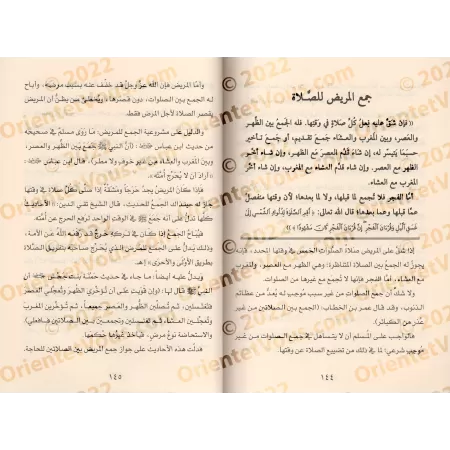 جمع المريض للصلاة
« فإن شق عليه فعل كل صلاة في وقتها، فله الجمع بين الظهر
والعصر، وبين المغرب والعشاء، جمع تقديم، أو جمع تأخير
حسبما يتيسر له، إن شاء قدم العصر مع الظهر، وإن شاء أخر
الظهر مع العصر، وإن شاء قدم العشاء مع المغرب، وإن شاء أخر
المغرب مع العشاء.
أما الفجر فلا تجمع لما قبلها، ولا لما بعدها؛ لأن وقتها منفصل
عما قبلها وعما بعدها؛ قال الله تعالى: ﴿أقم الصلاة لدلوك الشمس إلى
غسق الليل وقرآن الفجر إن قرآن الفجر كان مشهودا﴾ »
إذا شق على المريض أداء الصلوات الخمس في وقتها المحدد، فإنه
يجوز له الجمع بين الصلاة المتناظرة؛ وهي الظهر مع العصر، والمغرب
مع العشاء، أما الفجر فإنها لا تجمع مع غيرها من الصلوات.
ولا شك أن جمع الصلوات من غير سبب موجب له يعد من عظائم
الذنوب، وقد قال عمر بن الخطاب: (الجمع بين الصلاتين من غير
عذر من الكبائر).
فالواجب على المسلم أن لا يتساهل في جمع الصلوات من غير
موجب شرعي؛ لما في ذلك من تضييع الصلاة عن وقتها.
١٤٤
وأما المريض فإن الله عز وجل قد خفف عنه بسبب مرضه، وأباح
له الجمع بين الصلوات، دون قصرها، ويخطئ من يظن أن المريض
يقصر الصلاة لأجل المرض فقط.
والدليل على مشروعية الجمع للمريض: ما روى مسلم في صحيحه
من حديث ابن عباس: «أن النبي ﷺ جمع بين الظهر والعصر،
وبين المغرب والعشاء، من غير خوف ولا مطر). قال ابن عباس:
(أراد أن لا يحرج أمته) ».
فإذا كان المريض يجد حرجا ومشقة إذا صلى كل صلاة في وقتها
جاز له الجمع للحديث، قال الشيخ تقي الدين:
كلها تدل على أنه جمع في الوقت الواحد لرفع الحرج عن أمته،
فيباح الجمع إذا كان في تركه حرج قد رفعه الله عن الأمة،
وذلك يدل على الجمع للمرض الذي يحرج صاحبه بتفريق الصلاة
بطريق الأولى والأحرى».
ويدل عليه أيضا: ما جاء في حديث حمنة بنت جحش أن
النبي ﷺ قال لها: (وإن قويت على أن تؤخري الظهر وتعجلي العصر
فتغتسلين، ثم تصلين الظهر والعصر جميعا، ثم تؤخرين المغرب
وتعجلين العشاء، ثم تغتسلين وتجمعين بين الصلاتين فافعلي)
والاستحاضة نوع مرض،
فدلت هذه الأحاديث على جواز جمع المريض بين الصلاتين للحاجة.
١٤٥
© 2022
OrientetVous.com